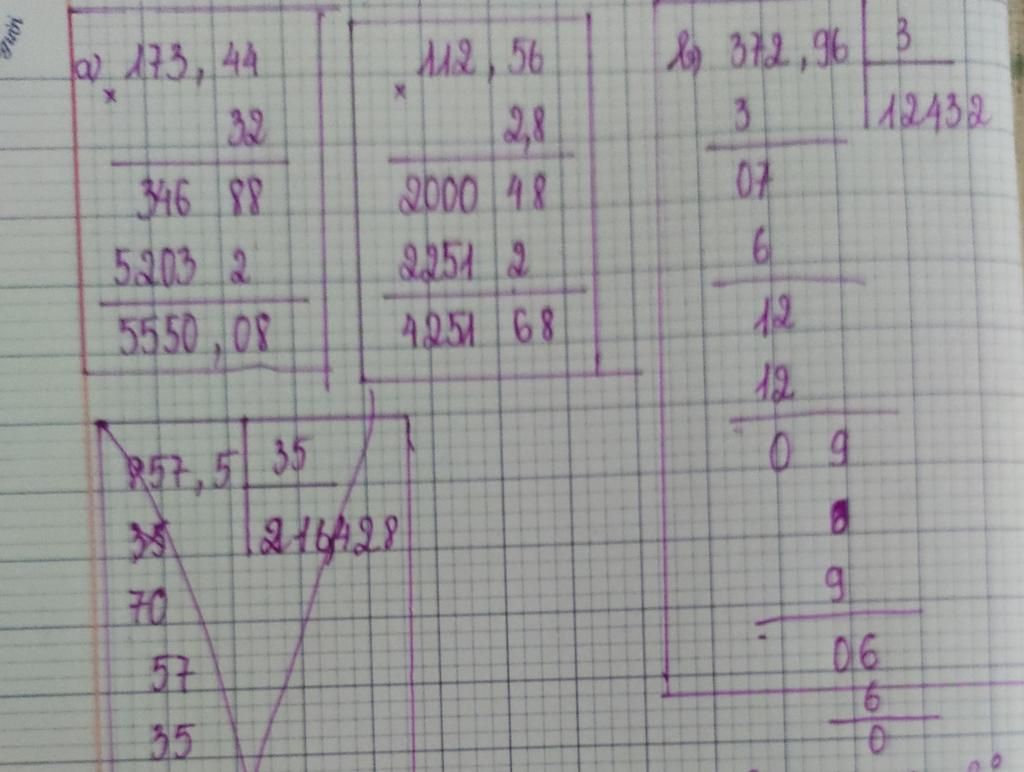 a) 173,44
×
32
346 88
5203 2
5550,08
112,56
×
2,8
2000 48
2251 2
4251 68
b) 372,96 3
3 12432
07
6
12
12
0 9
9
06
6
0
857,5 35
35
70
57
35